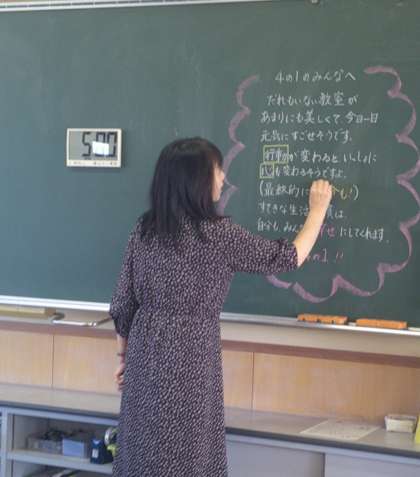 5:00
4の1のみんなへ
だれもいない教室が
あまりにも美しくて、今日一日
元気にすごせそうです。
行動が変わるといっしょに
心も変わるそうですよ。
(最終的に も!)
すてきな生活習慣は、
自分も、みんな せにしてくれます。
の1!!